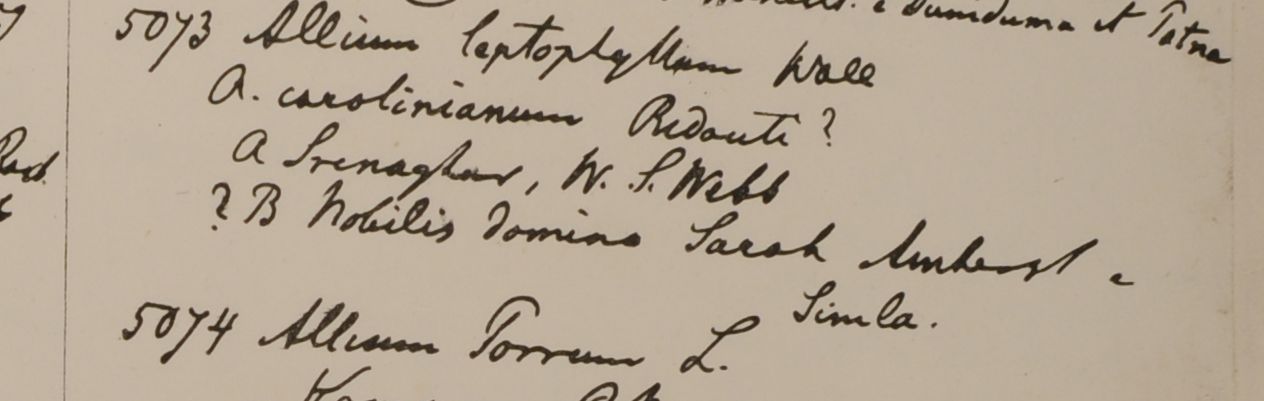 e Dumduma et Patna
5073 Allium leptophyllum Wall
A. carolinianum Redouti ?
A Srenaghur, W. S. Webb
? B Nobilis domina Sarah Amherst e
Simla.
5074 Allium Porrum L.